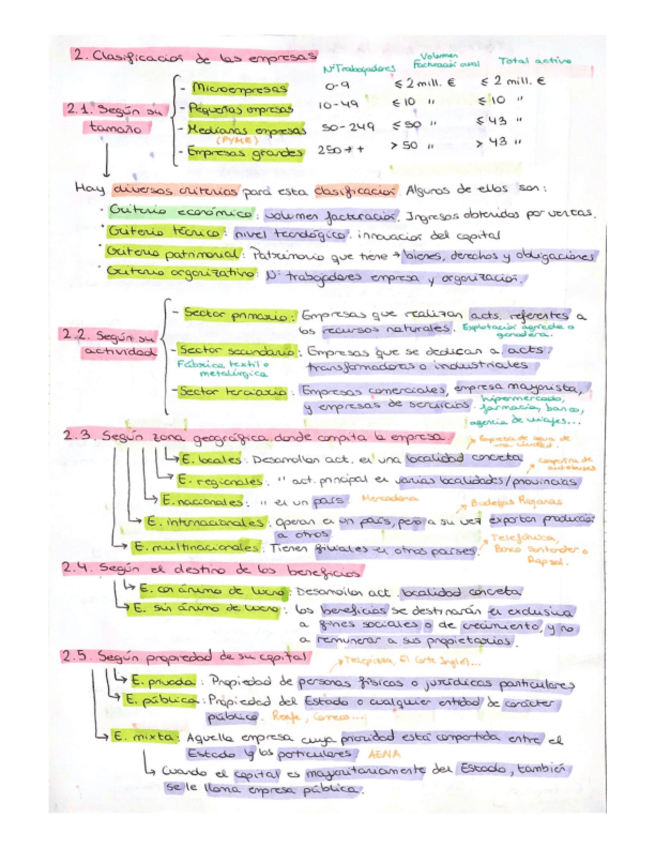 2. Clasificación de las empresas
Nº Trabajadores
Volumen
Facturación anual
Total activo
2.1. Según su
tamaño
- Microempresas 0-9 ≤ 2 mill. € ≤ 2 mill. €
- Pequeñas empresas 10-49 ≤ 10 " ≤ 10 "
- Medianas empresas 50-249 ≤ 50 " ≤ 43 "
(PYME)
- Empresas grandes 250 + + > 50 " > 43 "
Hay diversos criterios para esta clasificación. Algunos de ellos son:
· Criterio económico: volumen facturación. Ingresos obtenidos por ventas.
· Criterio técnico: nivel tecnológico. innovación del capital
· Criterio patrimonial: Patrimonio que tiene → bienes, derechos y obligaciones
· Criterio organizativo: Nº trabajadores empresa y organización.
2.2. Según su
actividad
- Sector primario: Empresas que realizan acts. referentes a
los recursos naturales. Explotación agrícola o
ganadera.
- Sector secundario: Empresas que se dedican a acts.
transformadoras o industriales
Fábrica textil o
metalúrgica
- Sector terciario: Empresas comerciales, empresa mayorista,
y empresas de servicios. hipermercado,
farmacia, banco,
agencia de viajes...
2.3. Según zona geográfica donde compita la empresa.
→ Empresa de agua de
una ciudad.
→ E. locales: Desarrollan act. en una localidad concreta
→ E. regionales: " act. principal en varias localidades/provincias
→ E. nacionales: " en un país Mercadona
→ Bodegas Riojanas
→ E. internacionales: operan en un país, pero a su vez exportan productos
a otros
→ E. multinacionales: Tienen filiales en otros países
→ Telefónica,
Banco Santander o
Repsol.
2.4. Según el destino de los beneficios
→ E. con ánimo de lucro: Desarrollan act. localidad concreta
→ E. sin ánimo de lucro: los beneficios se destinarán en exclusiva
a fines sociales o de crecimiento, y no
a remunerar a sus propietarios.
2.5. Según propiedad de su capital
→ Telepizza, El Corte Inglés...
→ E. privada: Propiedad de personas físicas o jurídicas particulares
→ E. pública: Propiedad del Estado o cualquier entidad de carácter
público. Renfe, Correos...
→ E. mixta: Aquella empresa cuya propiedad está compartida entre el
Estado y los particulares AENA
→ Cuando el capital es mayoritariamente del Estado, también
se le llama empresa pública.